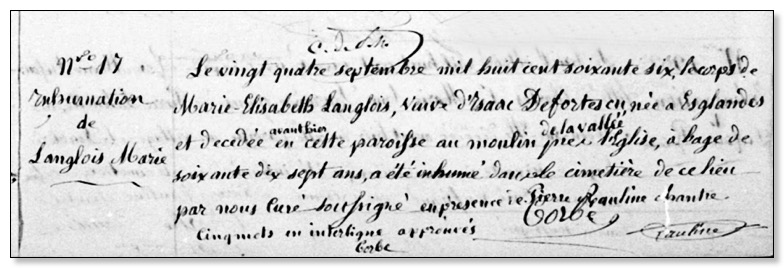 N.ro 17
Inhumation
de
Langlois Marie
Le vingt quatre septembre mil huit cent soixante six, le corps de
Marie-Elisabeth Langlois, veuve d'Isaac Defortescu, née a Esglandes
et decedée avanthier en cette paroisse au moulin de la vallée près l'Eglise, à l'age de
soixante dix sept ans, a été inhumé dans le cimetière de ce lieu
par nous Curé soussigné en presence de Pierre Pauline chantre.
Cinq mots en interligne approuvés
Corbe
Corbe
Pauline